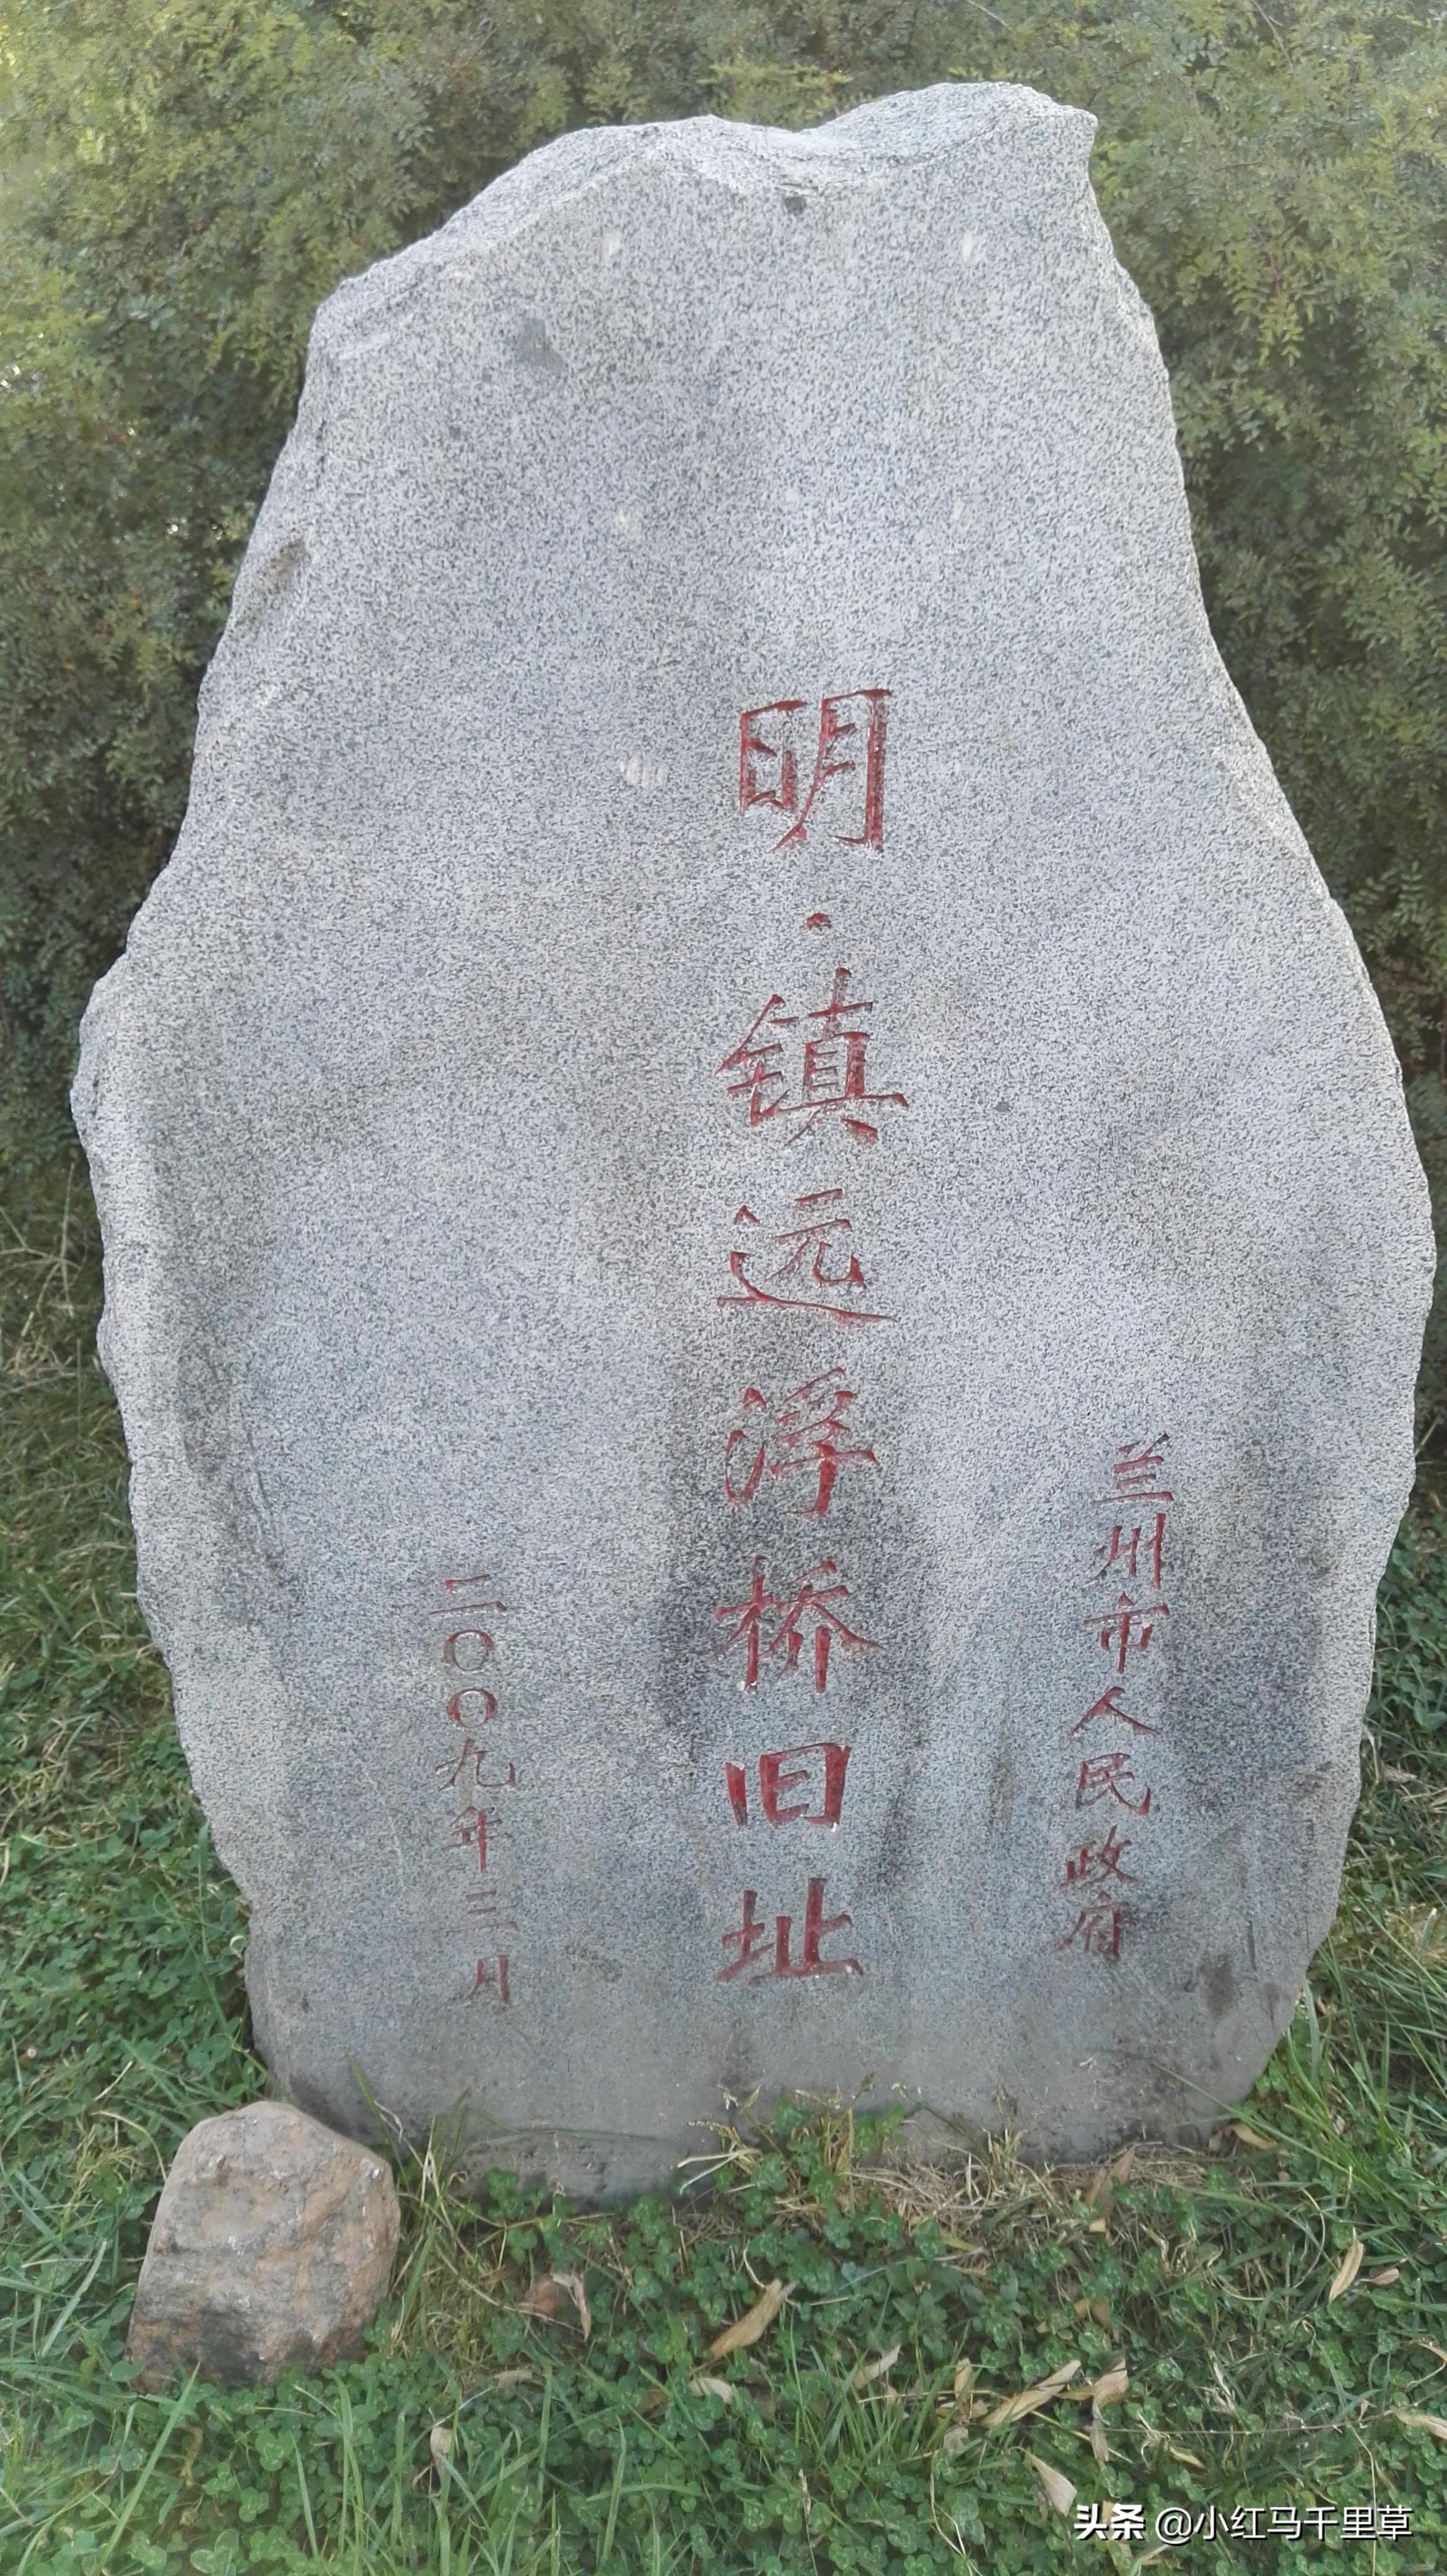 兰州市人民政府
明·镇远浮桥旧址
二〇〇九年三月
头条 @小红马千里草